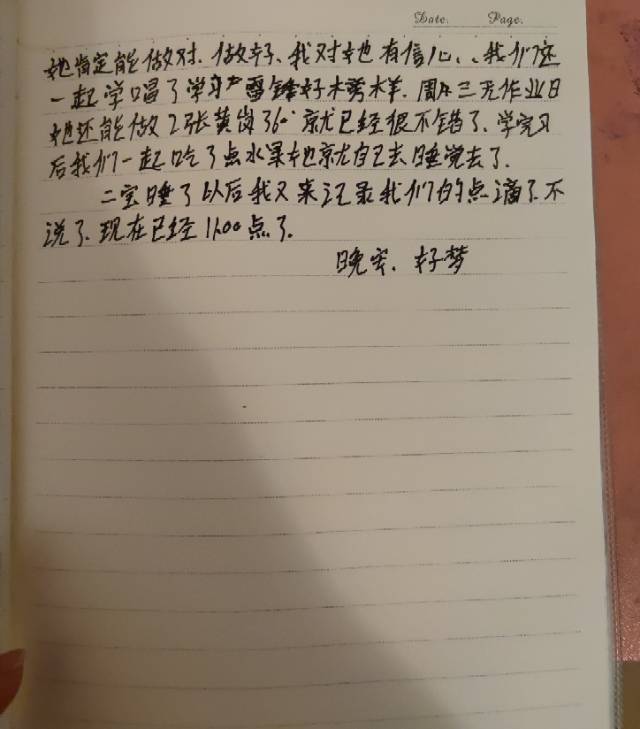 Date. Page.
她肯定能做对.做好、我对她有信心、我们还
一起学唱了学习雷锋好木旁木羊.周三无作业日
她还能做2张黄岗360°就已经很不错了、学完习
后我们一起吃了点水果她就自己去睡觉去了.
二宝睡了以后我又来记录我们的点滴了.不
说了.现在已经11:00点了.
晚安.好梦